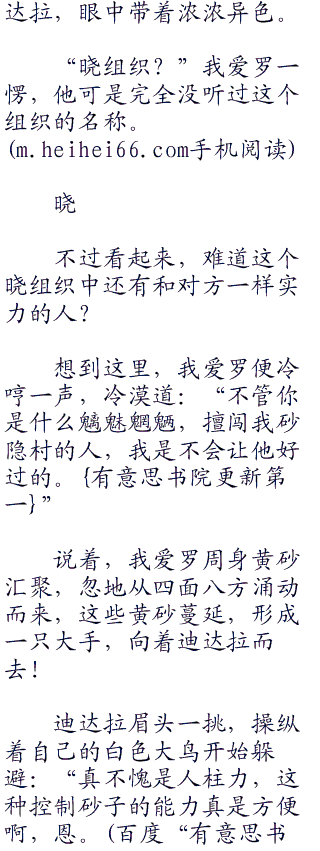 达拉，眼中带着浓浓异色。
“晓组织？”我爱罗一
愣，他可是完全没听过这个
组织的名称。
(m.heihei66.com手机阅读)
晓
不过看起来，难道这个
晓组织中还有和对方一样实
力的人？
想到这里，我爱罗便冷
哼一声，冷漠道：“不管你
是什么魑魅魍魉，擅闯我砂
隐村的人，我是不会让他好
过的。{有意思书院更新第
一}”
说着，我爱罗周身黄砂
汇聚，忽地从四面八方涌动
而来，这些黄砂蔓延，形成
一只大手，向着迪达拉而
去！
迪达拉眉头一挑，操纵
着自己的白色大鸟开始躲
避：“真不愧是人柱力，这
种控制砂子的能力真是方便
啊，恩。(百度“有意思书